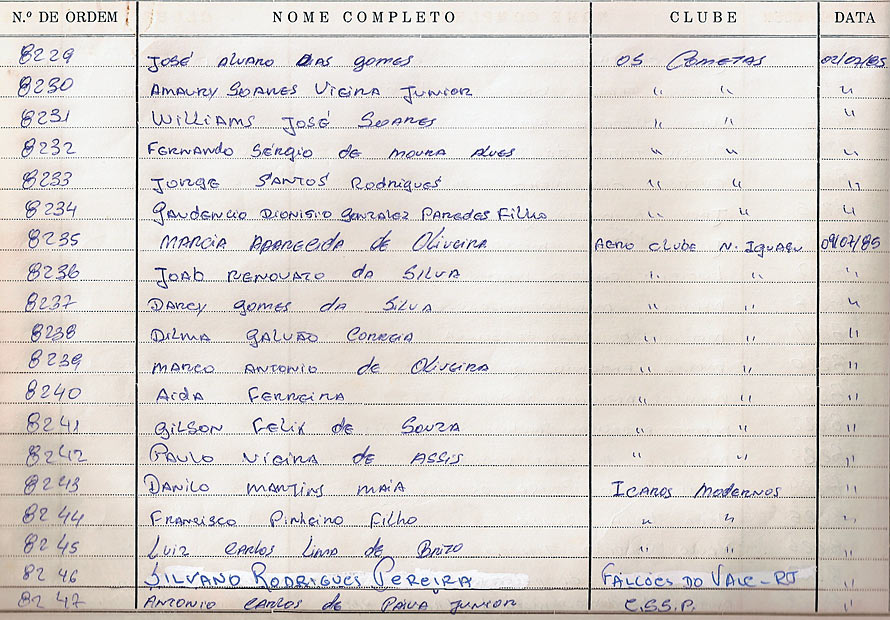 N.º DE ORDEM NOME COMPLETO CLUBE DATA
8229 JOSÉ ALVARO DIAS GOMES OS COMETAS 02/07/85
8230 AMAURY SOARES VIEIRA JUNIOR " " "
8231 WILLIAMS JOSÉ SOARES " " "
8232 FERNANDO SÉRGIO DE MOURA ALVES " " "
8233 JORGE SANTOS RODRIGUES " " "
8234 GAUDENCIO DIONISIO GONZALEZ PAREDES FILHO " " "
8235 MARCIA APARECIDA DE OLIVEIRA AERO CLUBE N. IGUAÇU 09/07/85
8236 JOAB RENOVATO DA SILVA " " "
8237 DARCY GOMES DA SILVA " " "
8238 DILMA GALVÃO CORREIA " " "
8239 MARCO ANTONIO DE OLIVEIRA " " "
8240 AIDA FERREIRA " " "
8241 GILSON FELIX DE SOUZA " " "
8242 PAULO VIEIRA DE ASSIS " " "
8243 DANILO MARTINS MAIA ICAROS MODERNOS "
8244 FRANCISCO PINHEIRO FILHO " " "
8245 LUIZ CARLOS LIMA DE BRITO " " "
8246 SILVANO RODRIGUES PEREIRA FALCÕES DO VALE-RJ "
8247 ANTONIO CARLOS DE PAIVA JUNIOR C.S.S.P. "